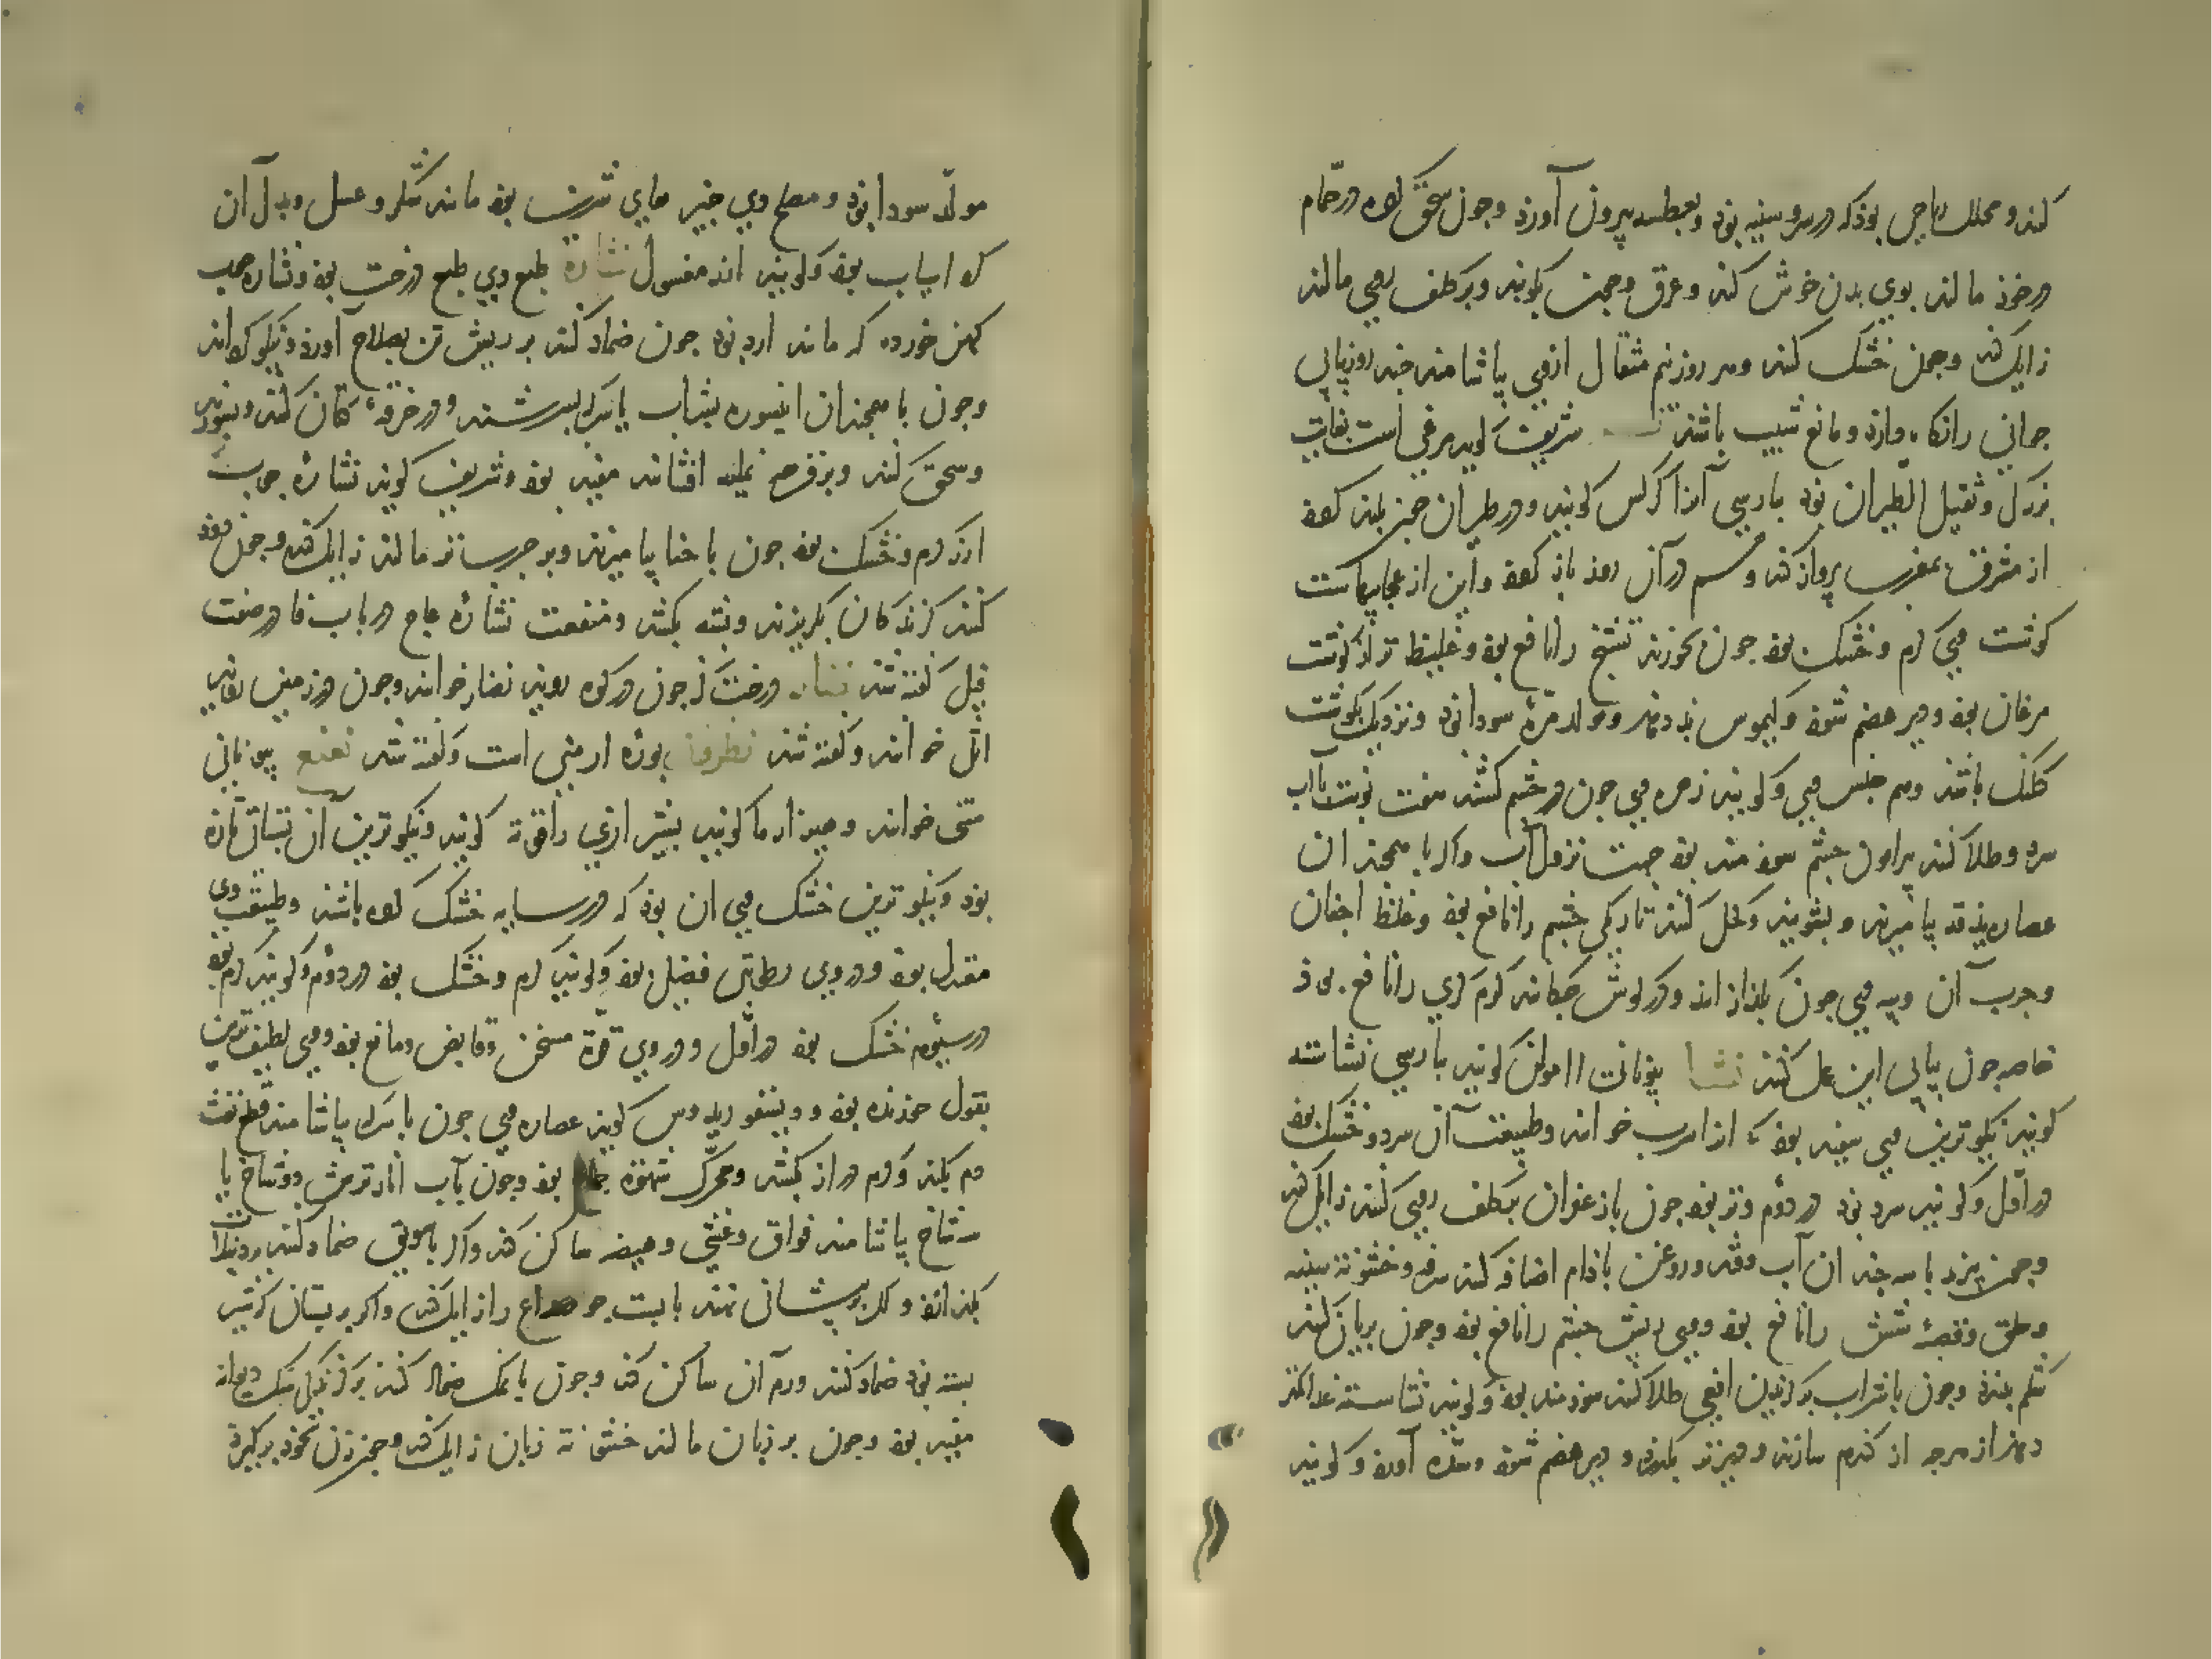 کند و محلل ریاحی بوذ که در سر و سینه بوذ و بعطسه بیرون آورذ و جون سحق کرده در حمام
در خوذ مالند بوی بدن خوش کند و عرق و جمت کویند و بر کلف روی مالند
زایل کند و جون خشک کنند و هر روز نیم مثقال از وی بیاشامند جند روز بیابی
جوانی را نکاه دارد و مانع شیب باشذ شریف کوید مرغی است بغایت
بزرک و ثقیل الطیران بوذ بارسی آنرا کرکس کویند و در طیران جیز بلند کوذ
از مشرق بمغرب پرواز کند و هم در آن روز باز کوذ و این از عجایبهاست
کوشت وی کرم و خشک بوذ جون بخورند تشنج را نافع بوذ و غلیظ تر از کوشت
مرغان بوذ و دیر هضم شوذ و کیموس بد دهد و مولد مرّهٔ سودا بوذ و نزدیک بکوشت
کلنک باشد و هم جنس وی و کویند زهره وی جون در جشم کشند هفت نوبت با آب
سرد و طلا کنند بیرامون جشم سوذمند بوذ جهت نزول آب و اکر با همجندان
عصاره بیامیزند و بشویند و کحل کنند تاریکی جشم را نافع بوذ و غلظ اجفان
و جرب آن و پیه وی جون بکذازانند و در کوش جکانند کرم کری را نافع بوذ
خاصه جون بیابی این عمل کنند نشا بیونانی امولن کویند بارسی نشاسته
کویند نیکوترین وی سفید بوذ که از اسرب خوانند و طبیعت آن سرد و خشک بوذ
در اول و کویند سرد بوذ در دوم و تر بوذ جون با زعفران بر کلف روی کنند زایل کند
و جون بپزند با سه جندان آب و قند و روغن باذام اضافه کنند سرفه و خشونة سینه
و حلق و قصبهٔ شش را نافع بوذ و وی ریش جشم را نافع بوذ و جون بریان کنند
شکم ببندد و جون با شراب بر کزیدن افعی طلا کنند سوذمند بوذ و کویند نشاسته غذا کمتر
دهذ از هرجه از کندم سازند و دیر تر بکذرد و دیر هضم شوذ و سدّه آورد و کویند
مولّد سودا بوذ و مصلح وی جیزهای شیرین بوذ مانند شکر و عسل و بدل آن
کرد اسیاب بوذ و کویند اند مغسول نشاره طبع وی طبع درخت بوذ و نشاره جوب
کهن خورده که مانند ارد بوذ جون ضماد کنند بر ریش تن بصلاح آورد و نیکو کرداند
و جون با همجندان انیسون بشراب یا سرکه بسرشند و در خرقهٔ کتان کنند و بسوزند
و سحق کنند و بر قرحه نمله افشانند مفید بوذ و شریف کوید نشارهٔ جوب
ارز کرم و خشک بوذ جون با حنا بیامیزند و بر جرب مالند زایل کند و جون دوذ
کنند کزندکان بکریزند و پشه بکشد و منفعت نشارهٔ عاج در باب فا در صفت
فیل کفته شذ نضار درخت کز جون در کوه روید نضار خوانند و جون در زمین روید
اثل خوانند و کفته شذ نطرون بورهٔ ارمنی است و کفته شذ نعنع بیونانی
مثنی خوانند و کویند بشیرازی راقوته کویند و نیکوترین آن بستانی تازه
بوذ و نیکوترین خشک وی ان بوذ که در سایه خشک کرده باشند و طبیعت وی
معتدل بوذ و در وی رطوبتی فضلی بوذ و کویند کرم و خشک بوذ در دوم و کویند کرم بوذ
در سیوم خشک بوذ در اول و در وی قوّة مسخن و قابض و مانع بوذ و وی لطیف ترین
بقول خورنده بوذ و دیسقوریدوس کوید عصاره وی جون با سرکه بیاشامند قطع نفث
دم بکند و کرم دراز بکشد و محرّک شهوة جماع بوذ و جون بآب انار ترش دو شاخ یا
سه شاخ بیاشامند فواق و غثی و هیضه ساکن کند و اکر با سویق ضماد کنند بر دبیلات
بکذرانذ و اکر بر پیشانی نهند با پست جو صداع را زایل کند و اکر بر پستان که شیر
بسته بوذ ضماد کنند ورم آن ساکن کند و جون با نمک ضماد کنند بر کزیدکی سک دیوانه
مفید بوذ و جون بر زبان مالند خشونة زبان زایل کند و جون زن بخوذ بر کیرد